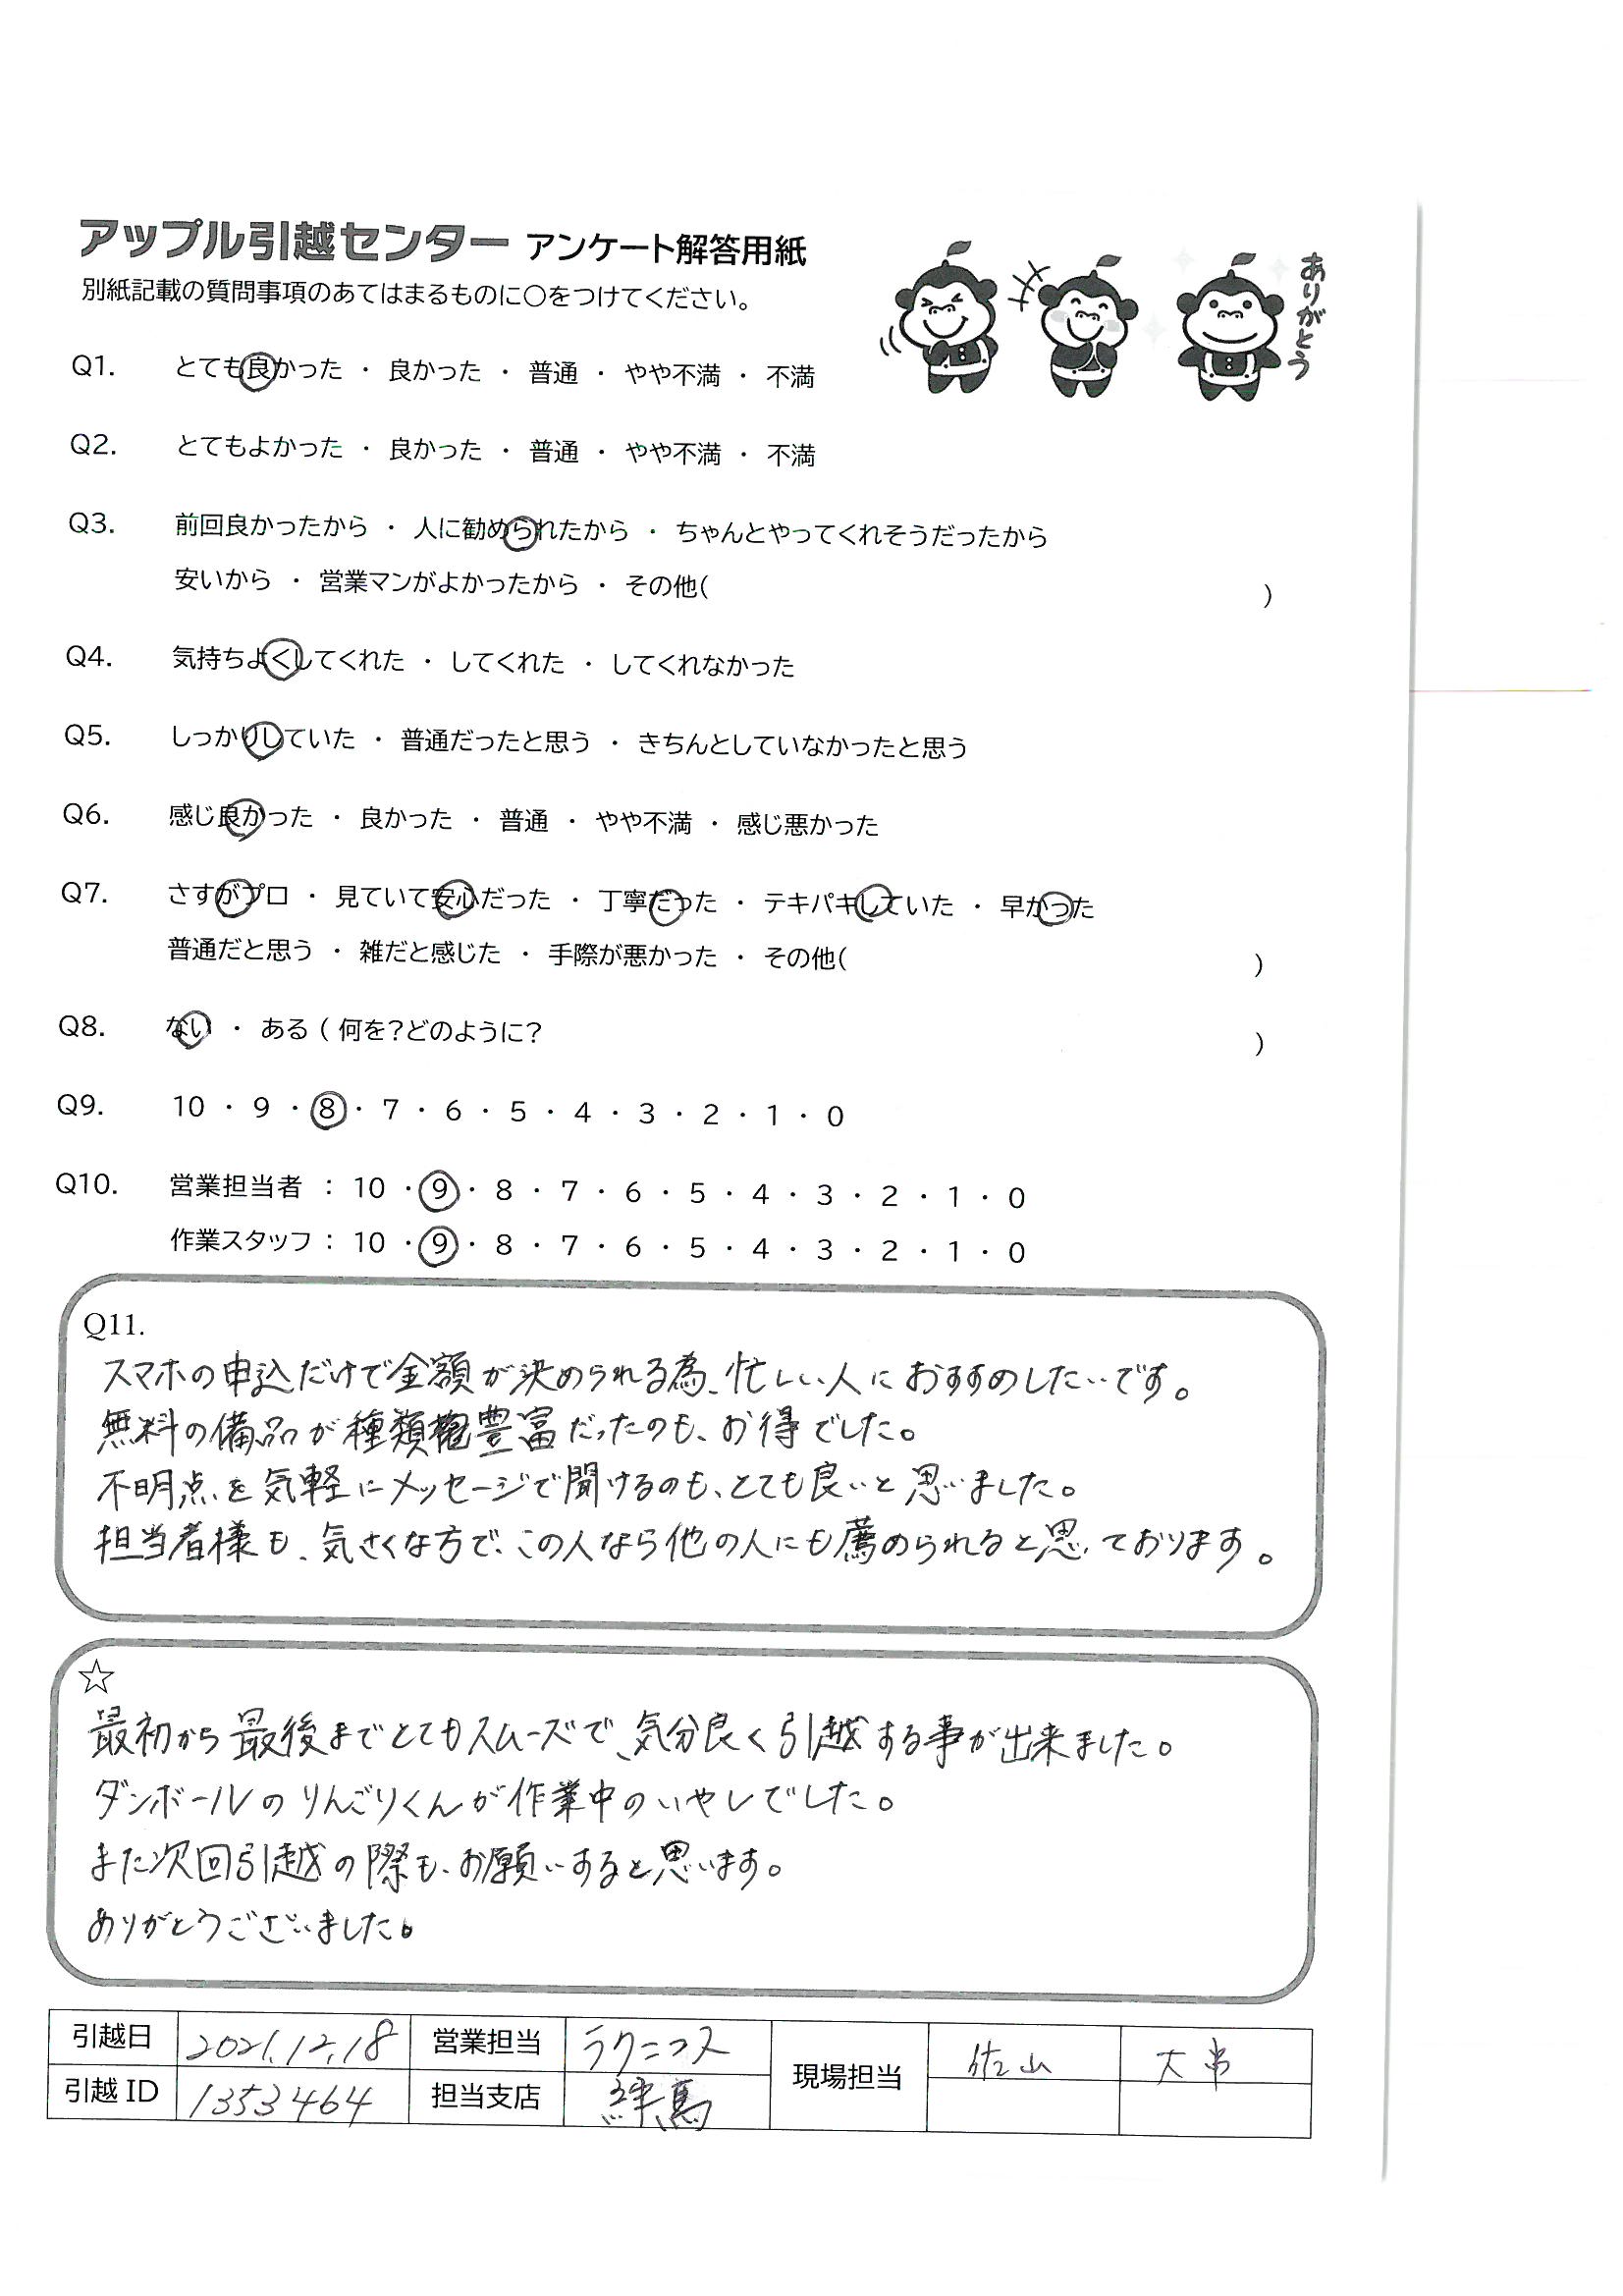 アップル引越センター アンケート解答用紙
別紙記載の質問事項のあてはまるものに○をつけてください。
ありがとう
Q1. とても良かった ・ 良かった ・ 普通 ・ やや不満 ・ 不満
Q2. とてもよかった ・ 良かった ・ 普通 ・ やや不満 ・ 不満
Q3. 前回良かったから ・ 人に勧められたから ・ ちゃんとやってくれそうだったから
安いから ・ 営業マンがよかったから ・ その他( )
Q4. 気持ちよくしてくれた ・ してくれた ・ してくれなかった
Q5. しっかりしていた ・ 普通だったと思う ・ きちんとしていなかったと思う
Q6. 感じ良かった ・ 良かった ・ 普通 ・ やや不満 ・ 感じ悪かった
Q7. さすがプロ ・ 見ていて安心だった ・ 丁寧だった ・ テキパキしていた ・ 早かった
普通だと思う ・ 雑だと感じた ・ 手際が悪かった ・ その他( )
Q8. ない ・ ある ( 何を?どのように? )
Q9. 10 ・ 9 ・ 8 ・ 7 ・ 6 ・ 5 ・ 4 ・ 3 ・ 2 ・ 1 ・ 0
Q10. 営業担当者 : 10 ・ 9 ・ 8 ・ 7 ・ 6 ・ 5 ・ 4 ・ 3 ・ 2 ・ 1 ・ 0
作業スタッフ : 10 ・ 9 ・ 8 ・ 7 ・ 6 ・ 5 ・ 4 ・ 3 ・ 2 ・ 1 ・ 0
Q11.
スマホの申込だけで金額が決められる為、忙しい人におすすめしたいです。
無料の備品が種類豊富だったのも、お得でした。
不明点を気軽にメッセージで聞けるのも、とても良いと思いました。
担当者様も、気さくな方で、この人なら他の人にも薦められると思っております。
☆
最初から最後までとてもスムーズで、気分良く引越する事が出来ました。
ダンボールのりんごりくんが作業中のいやしでした。
また次回引越の際も、お願いすると思います。
ありがとうございました。
引越日 2021.12.18 営業担当 ラクニコス 現場担当 佐山
引越 ID 1353464 担当支店